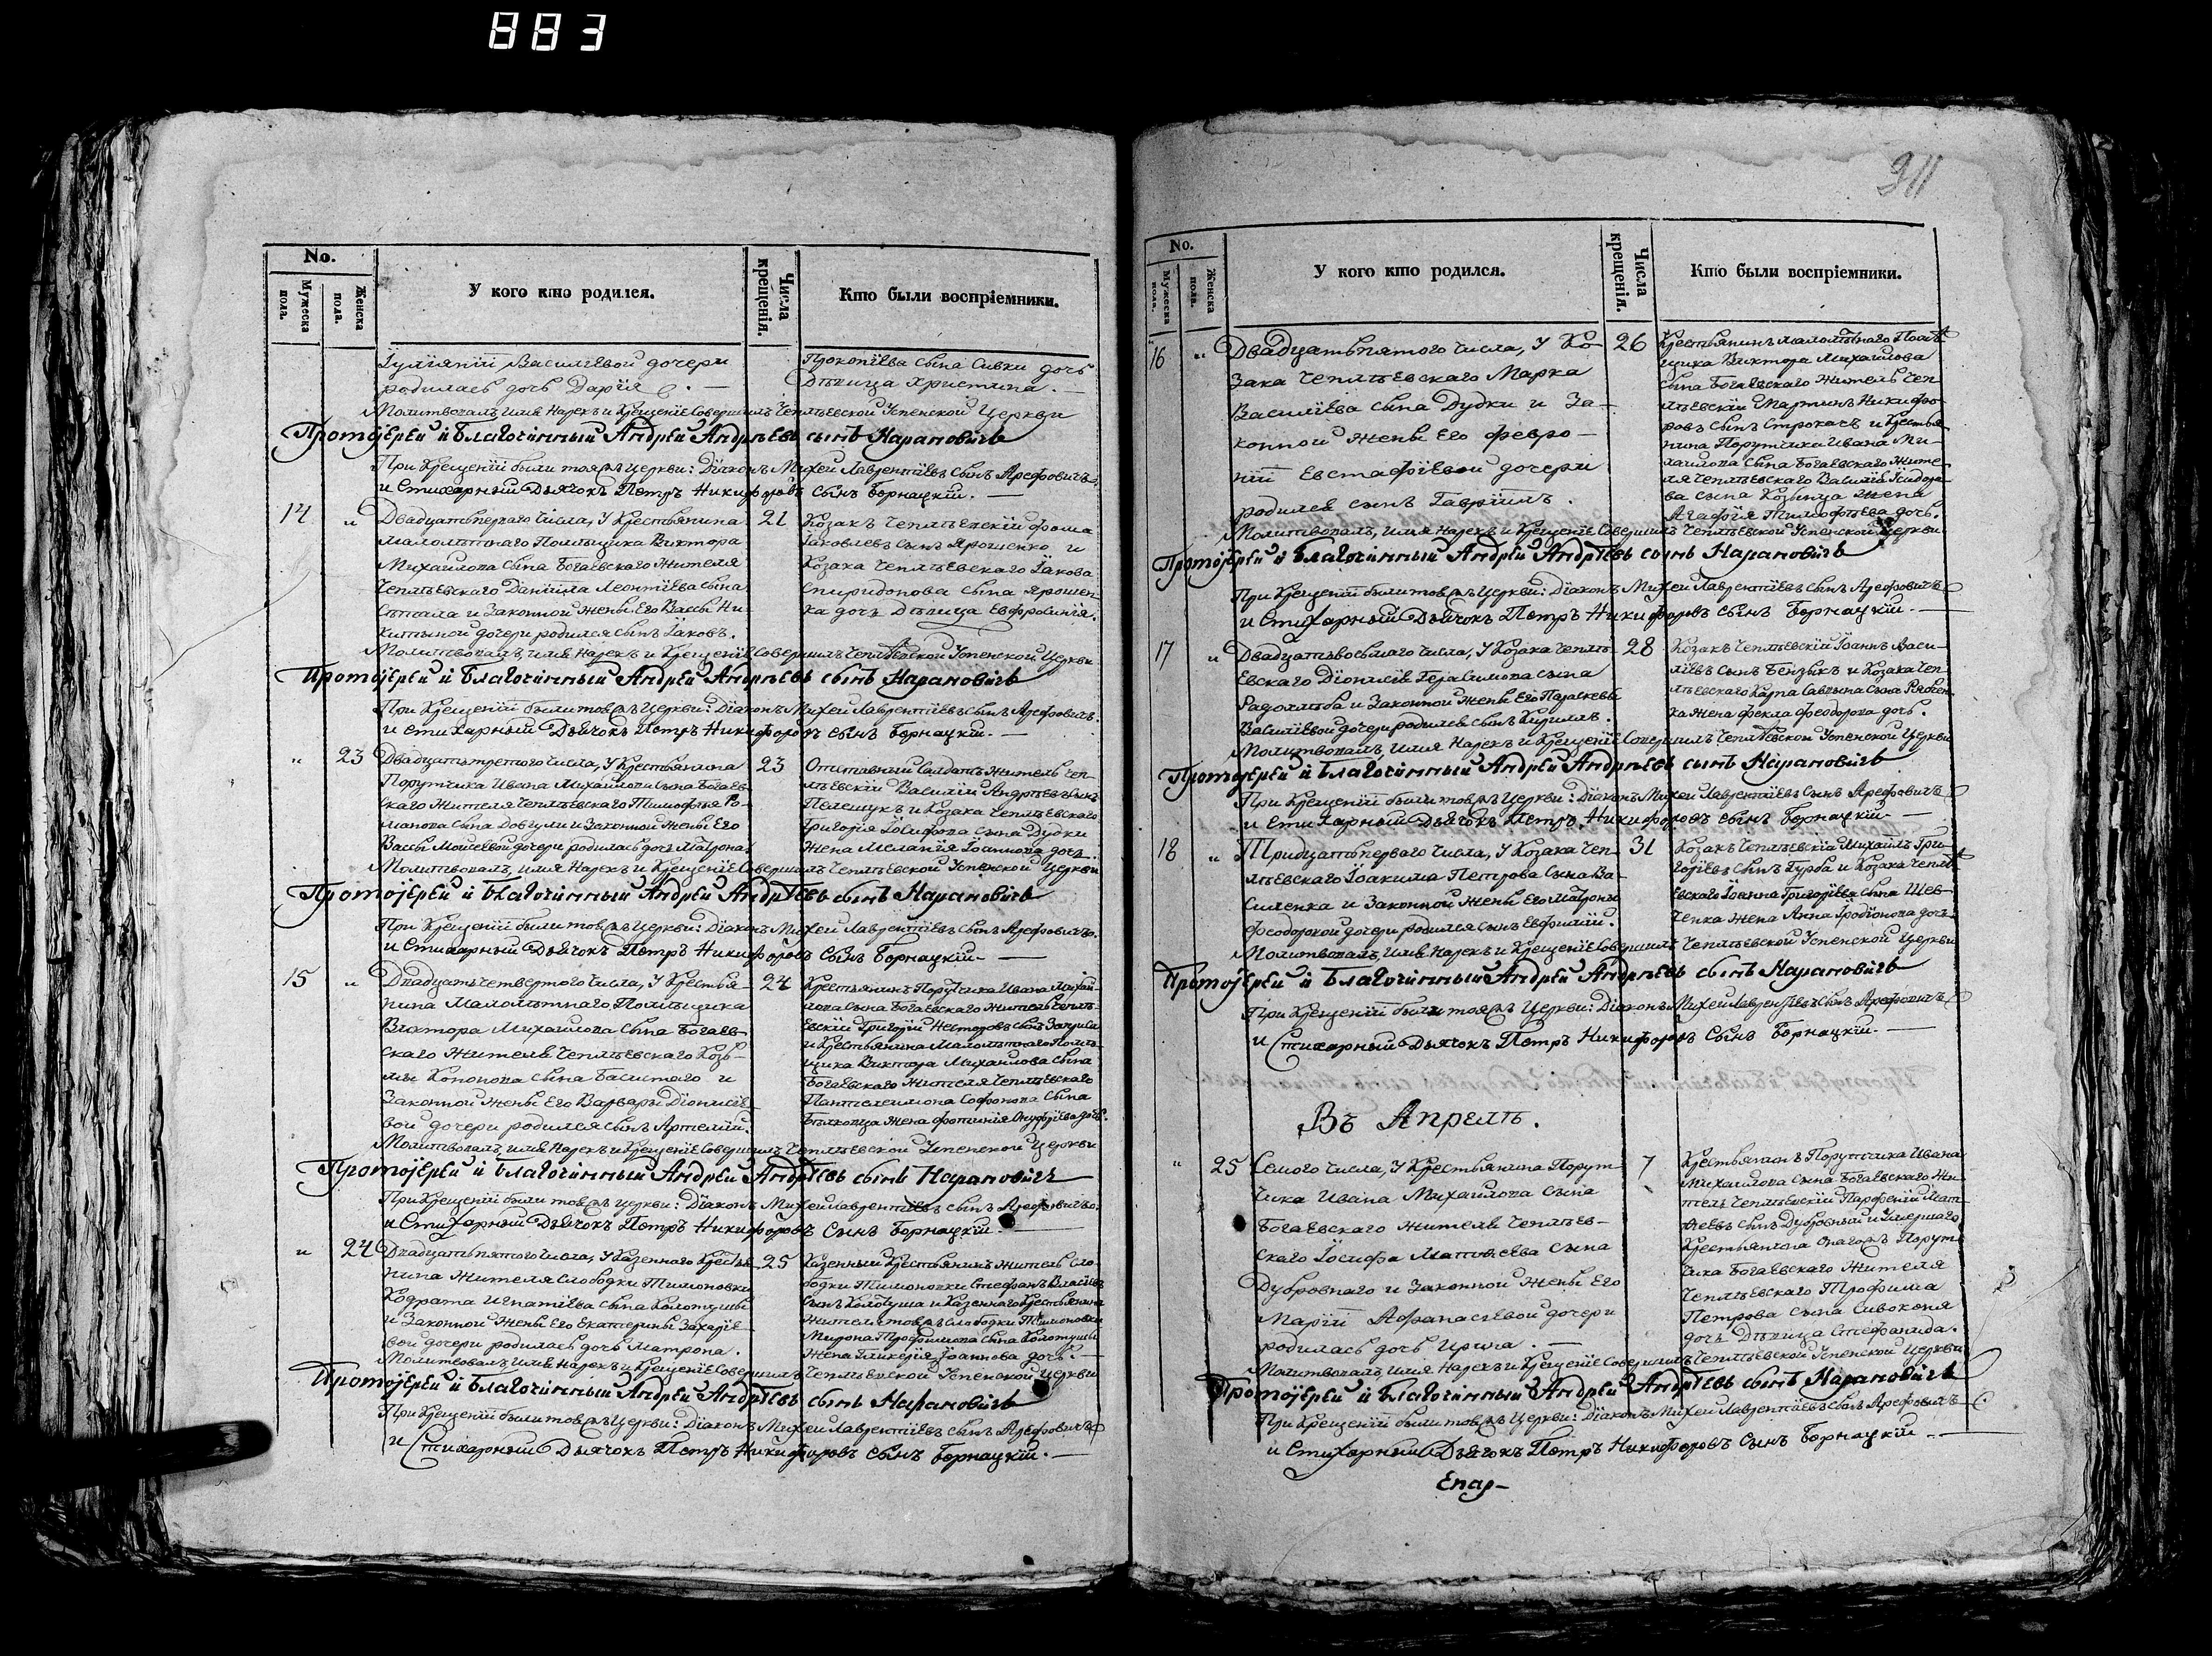 883
No.
Мужеска пола.
Женска пола.
У кого кто родился.
Числа крещенія.
Кто были воспріемники.
Іуліяніи Василіевой дочери
родилась дочь Дарія. —
Прокопіева сына Сивки дочь
Дѣвица Христина. —
Молитвовалъ, имя Нарекъ и Крещеніе Совершилъ Чеплѣевской Успенской Церкви
Протоіерей и Благочинный Андрей Андрѣевъ сынъ Нарановичъ
При Крещеніи были тояжъ Церкви: Діаконъ Михей Лаврентіевъ Сынъ Арефовичъ,
и Стихарный Дьячокъ Петръ Никифоровъ Сынъ Борнацкій. —
14 „ 21
Двадцатьперваго Числа, У Крестьянина
малолѣтнаго Помѣщика Виктора
Михаилова Сына Богаевскаго Жителя
Чеплѣевскаго Даніила Леонтіева Сына
и Законной Жены Его Вассы Ни-
китиной дочери родился Сынъ Іаковъ.
Козакъ Чеплѣевскій Фома
Іаковлевъ Сынъ Ярошенко и
Козака Чеплѣевскаго Іакова
Спиридонова Сына Ярошен-
ка дочь Дѣвица Евфросинія.
Молитвовалъ, имя Нарекъ и Крещеніе Совершилъ Чеплѣевской Успенской Церкви
Протоіерей и Благочинный Андрей Андрѣевъ сынъ Нарановичъ
При Крещеніи были тояжъ Церкви: Діаконъ Михей Лаврентіевъ Сынъ Арефовичъ.
и Стихарный Дьячокъ Петръ Никифоровъ Сынъ Борнацкій. —
„ 23 23
Двадцатьтретого Числа, У Крестьянина
Порутчика Ивана Михаилова Сына Богаев-
скаго Жителя Чеплѣевскаго Тимофея Ро-
манова Сына Довгули и Законной Жены Его
Вассы Моисеевой дочери родилась дочь Матрона.
Отставный Солдатъ Житель Чеп-
лѣевскій Василій Андрѣевъ Сынъ
Пелещукъ и Козака Чеплѣевскаго
Григорія Іосифова Сына Дудки
Жена Меланія Іоаннова дочь.
Молитвовалъ, имя Нарекъ и Крещеніе Совершилъ Чеплѣевской Успенской Церкви
Протоіерей и Благочинный Андрей Андрѣевъ сынъ Нарановичъ
При Крещеніи были тояжъ Церкви: Діаконъ Михей Лаврентіевъ Сынъ Арефовичъ.
и Стихарный Дьячокъ Петръ Никифоровъ Сынъ Борнацкій. —
15 „ 24
Двадцатьчетвертого Числа, У Крестья-
нина Малолѣтнаго Помѣщика
Виктора Михаилова Сына Богаев-
скаго Жителя Чеплѣевскаго Козь-
мы Кононова Сына Баситаго и
Законной Жены Его Варвары Діонисіе-
вой дочери родился Сынъ Артемій.
Крестьянинъ Порутчика Ивана Михаи-
лова Сына Богаевскаго Житель Чеплѣ-
евскій Григорій Несторовъ Сынъ
и Крестьянина Малолѣтнаго Помѣ-
щика Виктора Михаилова Сына
Богаевскаго Жителя Чеплѣевскаго
Пантелеимона Софонова Сына
Жена Фотинія Онуфріева дочь.
Молитвовалъ, имя Нарекъ и Крещеніе Совершилъ Чеплѣевской Успенской Церкви
Протоіерей и Благочинный Андрей Андрѣевъ сынъ Нарановичъ
При Крещеніи были тояжъ Церкви: Діаконъ Михей Лаврентіевъ Сынъ Арефовичъ,
и Стихарный Дьячокъ Петръ Никифоровъ Сынъ Борнацкій. —
„ 24 25
Двадцатьпятого Числа, У Казеннаго Крестья-
нина Жителя Слободки Тимоновки
Кодрата Игнатіева Сына Колотуши
и Законной Жены Его Екатерины Захаріе-
вой дочери родилась дочь Матрона.
Казенный Крестьянинъ Житель Сло-
бодки Тимоновки Стефанъ Власіевъ
Сынъ Колотуша и Казеннаго Крестьянина
Жителя тояжъ Слободки Тимоновки
Мирона Трофимова Сына Колотуши
Жена Гликерія Іоаннова дочь. —
Молитвовалъ, имя Нарекъ и Крещеніе Совершилъ Чеплѣевской Успенской Церкви
Протоіерей и Благочинный Андрей Андрѣевъ сынъ Нарановичъ
При Крещеніи были тояжъ Церкви: Діаконъ Михей Лаврентіевъ Сынъ Арефовичъ
и Стихарный Дьячокъ Петръ Никифоровъ Сынъ Борнацкій. —
911
No.
Мужеска пола.
Женска пола.
У кого кто родился.
Числа крещенія.
Кто были воспріемники.
16 „ 26
Двадцатьпятого Числа, У Ко-
зака Чеплѣевскаго Марка
Василіева Сына Дудки и За-
конной Жены Его Февро-
ніи Евстафіевой дочери
родился сынъ Гавріилъ.
Крестьянинъ малолѣтнаго Помѣ-
щика Виктора Михаилова
Сына Богаевскаго Житель Чеп-
лѣевскій Мартинъ Никифо-
ровъ Сынъ Строкачъ и Крестья-
нина Порутчика Ивана Ми-
хаилова Сына Богаевскаго Жите-
ля Чеплѣевскаго Василія Ісидоро-
ва Сына Козинца Жена
Агафія Тимофѣева дочь.
Молитвовалъ, имя Нарекъ и Крещеніе Совершилъ Чеплѣевской Успенской Церкви
Протоіерей и Благочинный Андрей Андрѣевъ сынъ Нарановичъ
При Крещеніи были тояжъ Церкви: Діаконъ Михей Лаврентіевъ Сынъ Арефовичъ
и Стихарный Дьячокъ Петръ Никифоровъ Сынъ Борнацкій. —
17 „ 28
Двадцатьвосьмаго Числа, У Козака Чеплѣ-
евскаго Діонисія Герасимова сына
и Законной Жены Его Параскевы
Василіевой дочери родился Сынъ Кириллъ.
Козакъ Чеплѣевскій Іоаннъ Васи-
ліевъ Сынъ Бензыкъ и Козака Чеп-
лѣевскаго Карпа Саввина Сына Рябчен-
ка Жена Фекла Феодорова дочь.
Молитвовалъ, имя Нарекъ и Крещеніе Совершилъ Чеплѣевской Успенской Церкви
Протоіерей и Благочинный Андрей Андрѣевъ сынъ Нарановичъ
При Крещеніи были тояжъ Церкви: Діаконъ Михей Лаврентіевъ Сынъ Арефовичъ
и Стихарный Дьячокъ Петръ Никифоровъ Сынъ Борнацкій. —
18 „ 31
Тридцатьперваго Числа, У Козака Чеп-
лѣевскаго Іоакима Петрова Сына Ва-
силенка и Законной Жены Его Матроны
Феодоровой дочери родился Сынъ Евфимій.
Козакъ Чеплѣевскій Михаилъ Гри-
горіевъ Сынъ Гурба и Козака Чеплѣ-
евскаго Іоанна Григоріева Сына Шев-
ченка Жена Анна Іродіонова дочь.
Молитвовалъ, имя Нарекъ и Крещеніе Совершилъ Чеплѣевской Успенской Церкви
Протоіерей и Благочинный Андрей Андрѣевъ сынъ Нарановичъ
При Крещеніи были тояжъ Церкви: Діаконъ Михей Лаврентіевъ Сынъ Арефовичъ
и Стихарный Дьячокъ Петръ Никифоровъ Сынъ Борнацкій. —
Въ Апрелѣ.
„ 25 7
Семого Числа, У Крестьянина Порут-
чика Ивана Михаилова Сына
Богаевскаго Жителя Чеплѣев-
скаго Іосифа Матвѣева Сына
Дубровнаго и Законной Жены Его
Маріи Афанасіевой дочери
родилась дочь Ирина. —
Крестьянинъ Порутчика Ивана
Михаилова Сына Богаевскаго Жи-
тель Чеплѣевскій Парфеній Мат-
вѣевъ Сынъ Дубровный и Умершаго
Крестьянина Онагожъ Порут-
чика Богаевскаго Жителя
Чеплѣевскаго Трофима
Петрова Сына Сивоконя
дочь Дѣвица Стефанида.
Молитвовалъ, имя Нарекъ и Крещеніе Совершилъ Чеплѣевской Успенской Церкви
Протоіерей и Благочинный Андрей Андрѣевъ сынъ Нарановичъ
При Крещеніи были тояжъ Церкви: Діаконъ Михей Лаврентіевъ Сынъ Арефовичъ
и Стихарный Дьячокъ Петръ Никифоровъ Сынъ Борнацкій. —
Епар-